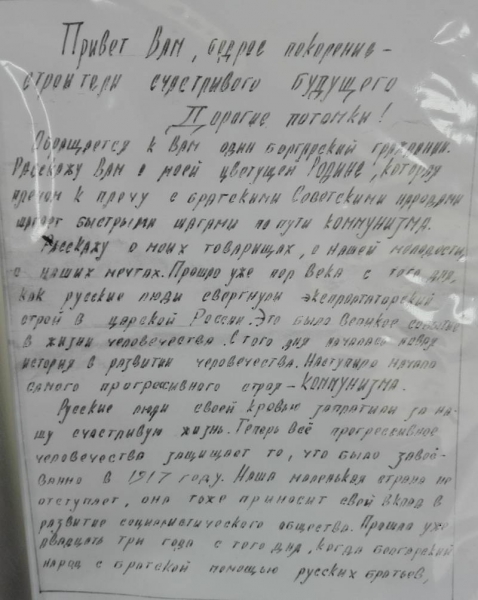 Привет Вам, бодрое поколение -
строители счастливого будущего
Дорогие потомки!
Обращается к Вам один болгарский гражданин.
Расскажу Вам о моей цветущей РОДИНЕ, которая
плечом к плечу с братскими Советскими народами
шагает быстрыми шагами по пути КОММУНИЗМА.
Расскажу о моих товарищах, о нашей молодости,
о наших мечтах. Прошло уже пол века с того дня,
как русские люди свергнули эксплоататорский
строй в царской России. Это было великое событие
в жизни человечества. С того дня началась новая
история в развитии человечества. Наступило начало
самого прогресивного строя - КОММУНИЗМА.
Русские люди своей кровью запратили за на-
шу счастливую жизнь. Теперь всё прогрессивное
человечества защищает то, что было завоё-
ванно в 1917 году. Наша маленькая страна не
отступает, она тоже приносит свой вклад в
развитие социалистического общества. Прошло уже
двадцать три года с того дня, когда болгарский
народ с братской помощью русских братьев,